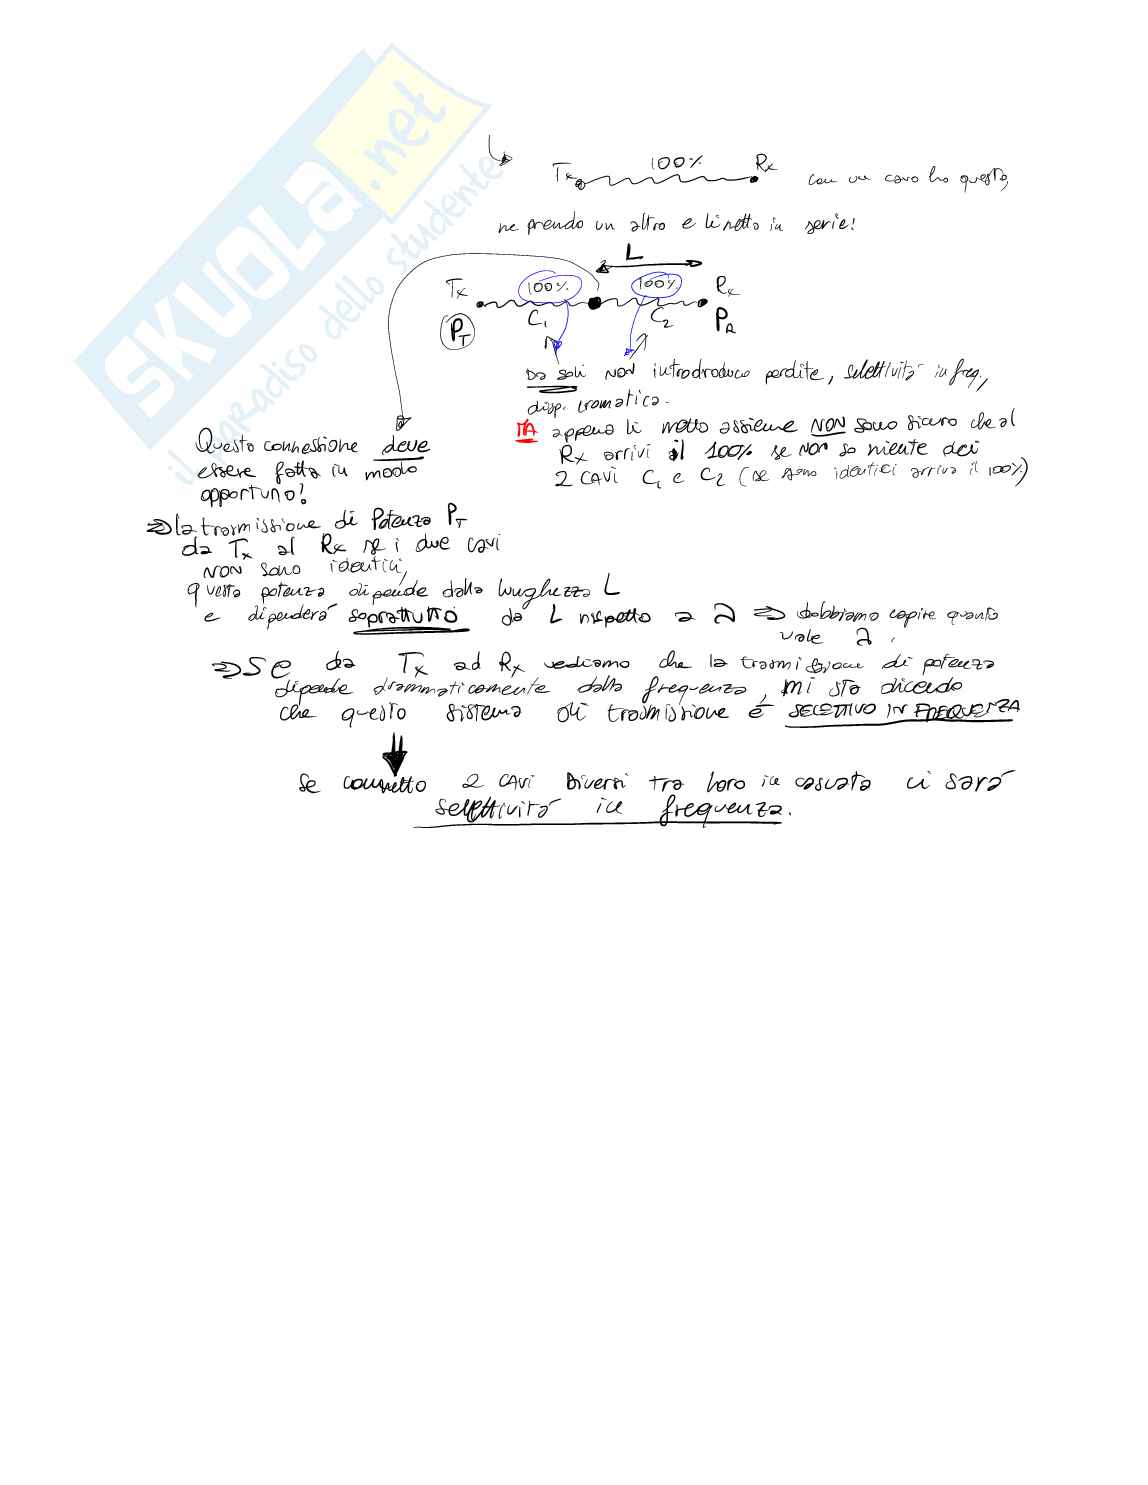 SKUOLA.net
il paradiso dello studente
Tx 100% Rx con un cavo ho questo,
ne prendo un altro e li metto in serie!
L
Tx 100% 100% Rx
C1 C2
PT PR
Da soli NON introdroduco perdite, selettività in freq,
disp. cromatica.
MA appena li metto assieme NON sono sicuro che al
Rx arrivi il 100% se NON so niente dei
2 CAVI C1 e C2 (se sono identici arriva il 100%)
Questa connessione deve
essere fatta in modo
opportuno!
⇒ la trasmissione di Potenza PT
da Tx al Rx se i due cavi
NON sono identici,
questa potenza dipende dalla lunghezza L
e dipenderà soprattutto da L rispetto a λ ⇒ dobbiamo capire quanto
vale λ.
⇒ Se da Tx ad Rx vediamo che la trasmissione di potenza
dipende drammaticamente dalla frequenza, mi sta dicendo
che questo sistema di trasmissione è SELETTIVO IN FREQUENZA
⇓
Se connetto 2 CAVI Diversi tra loro in cascata ci sarà
selettività in frequenza.